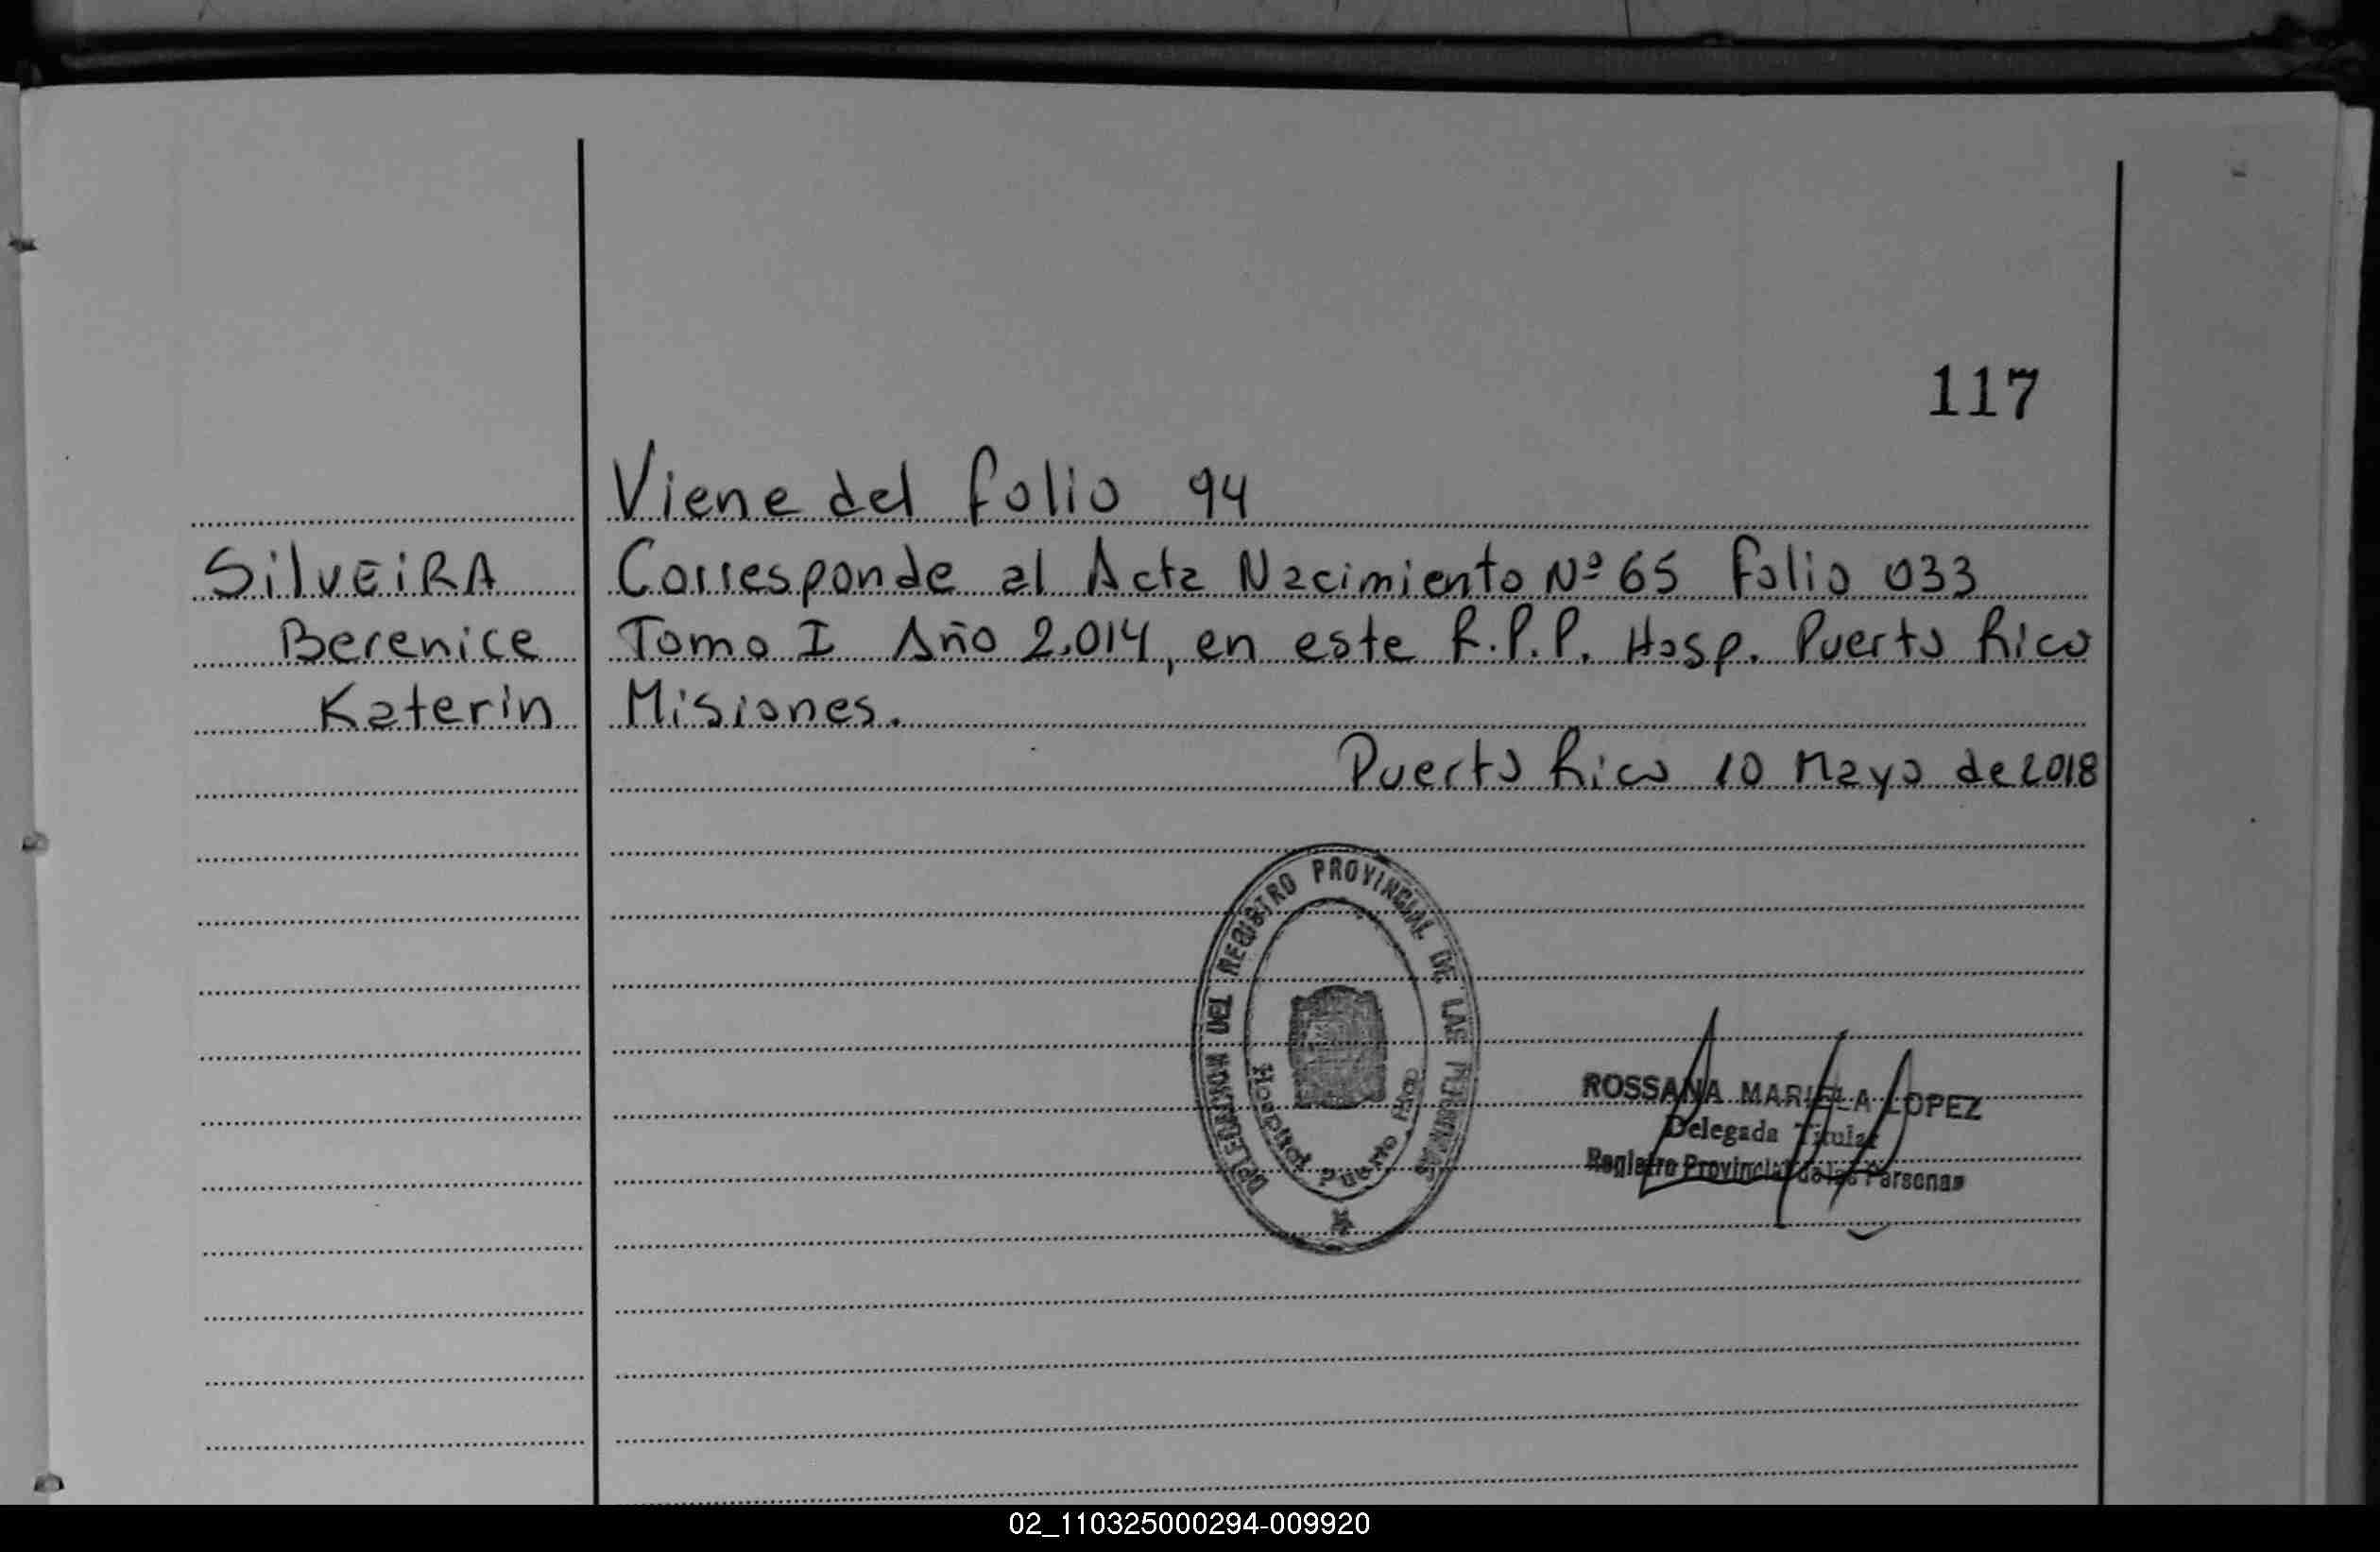 117
Viene del folio 94
SilVEiRA Corresponde al Acta Nacimiento Nº 65 folio 033
Berenice Tomo I Año 2.014, en este R.P.P. Hosp. Puerto Rico
Katerin Misiones.
Puerto Rico 10 Mayo de 2018
DELEGACION DEL REGISTRO PROVINCIAL DE LAS PERSONAS
Hospital Puerto Rico
ROSSANA MARIELA LOPEZ
Delegada Titular
Registro Provincial de las Personas
02_110325000294-009920